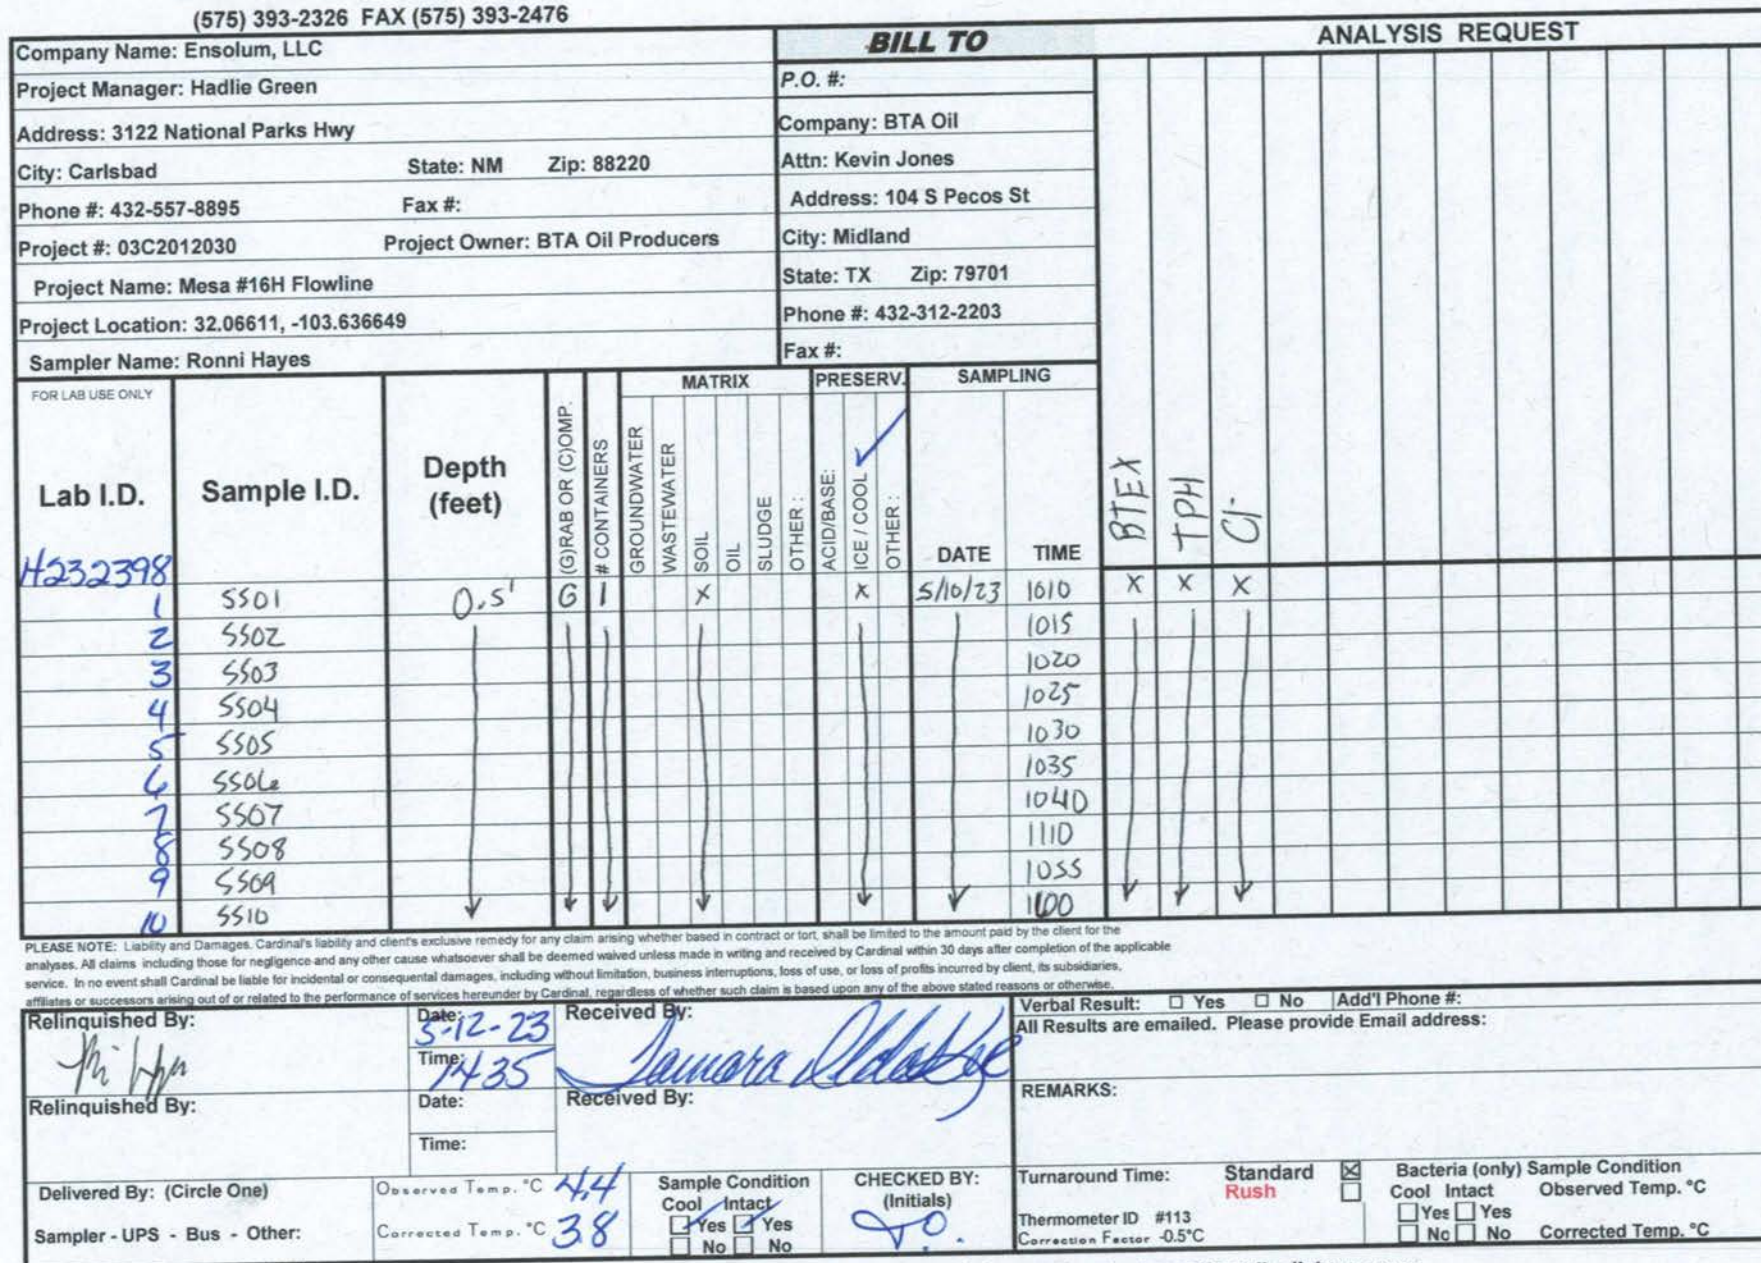 (575) 393-2326 FAX (575) 393-2476
Company Name: Ensolum, LLC
BILL TO
ANALYSIS REQUEST
Project Manager: Hadlie Green
P.O. #:
Address: 3122 National Parks Hwy
Company: BTA Oil
City: Carlsbad State: NM Zip: 88220
Attn: Kevin Jones
Phone #: 432-557-8895 Fax #:
Address: 104 S Pecos St
Project #: 03C2012030 Project Owner: BTA Oil Producers
City: Midland
Project Name: Mesa #16H Flowline
State: TX Zip: 79701
Project Location: 32.06611, -103.636649
Phone #: 432-312-2203
Sampler Name: Ronni Hayes
Fax #:
FOR LAB USE ONLY
MATRIX PRESERV. SAMPLING
Lab I.D. Sample I.D. Depth (feet) (G)RAB OR (C)OMP. # CONTAINERS GROUNDWATER WASTEWATER SOIL OIL SLUDGE OTHER : ACID/BASE: ICE / COOL ✓ OTHER : DATE TIME BTEX TPH Cl-
H232398
1 SS01 0.5' G 1 X X 5/10/23 1010 X X X
2 SS02 1015
3 SS03 1020
4 SS04 1025
5 SS05 1030
6 SS06 1035
7 SS07 1040
8 SS08 1110
9 SS09 1055
10 SS10 1100
PLEASE NOTE: Liability and Damages. Cardinal's liability and client's exclusive remedy for any claim arising whether based in contract or tort, shall be limited to the amount paid by the client for the
analyses. All claims including those for negligence and any other cause whatsoever shall be deemed waived unless made in writing and received by Cardinal within 30 days after completion of the applicable
service. In no event shall Cardinal be liable for incidental or consequental damages, including without limitation, business interruptions, loss of use, or loss of profits incurred by client, its subsidiaries,
affiliates or successors arising out of or related to the performance of services hereunder by Cardinal, regardless of whether such claim is based upon any of the above stated reasons or otherwise.
Relinquished By:
Date: 5-12-23
Time: 1435
Received By:
Tamara
Verbal Result: ☐ Yes ☐ No Add'l Phone #:
All Results are emailed. Please provide Email address:
Relinquished By:
Date:
Time:
Received By:
REMARKS:
Delivered By: (Circle One)
Sampler - UPS - Bus - Other:
Observed Temp. °C 4.4
Corrected Temp. °C 3.8
Sample Condition
Cool Intact
☑ Yes ☑ Yes
☐ No ☐ No
CHECKED BY:
(Initials)
Turnaround Time: Standard ☒
Rush ☐
Thermometer ID #113
Correction Factor -0.5°C
Bacteria (only) Sample Condition
Cool Intact Observed Temp. °C
☐ Yes ☐ Yes
☐ No ☐ No Corrected Temp. °C